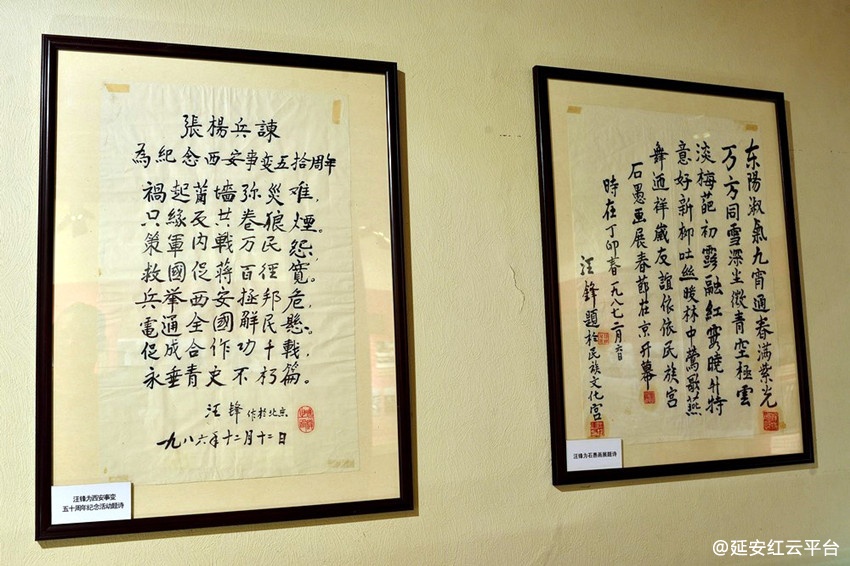 張楊兵諫
為紀念西安事变五拾周年
禍起萧墙弥災难，
只緣反共卷狼煙。
策軍内戰万民怨，
救國促蔣百徑寬。
兵举西安拯邦危，
電通全國解民懸。
促成合作功千戰，
永垂青史不朽篇。
汪锋 作於北京
一九八六年十二月十二日
汪锋为西安事变
五十周年纪念活动题诗
东陽淑氣九宵通春满紫光
万方同雪深尘微青空極雲
淡梅葩初露融红霞曉升特
意好新柳吐丝暖林中莺歌燕
舞迊祥歲友誼依依民族宫
石愚画展春節在京开幕
時在丁卯春一九八七二月六日
汪锋题於民族文化宫
汪锋为石愚画展题诗
@延安红云平台